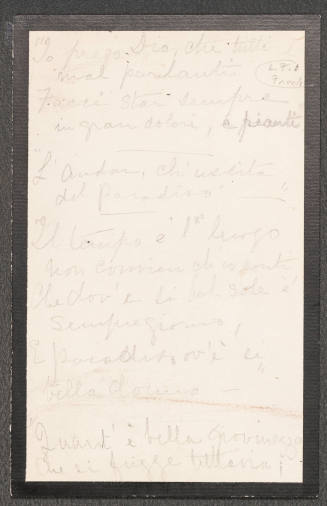 "Io prego Dio, che tutti i
mal parlanti
Facci star sempre
in gran dolori, e pianti"
"L'andar, ch'
del Paradiso"
Il tempo e' l' luogo
non convien
Che dov'e si bel sole é
sempregiorno,
E paradiso ov'è si
bella donna —"
"Quant' è bella giovinezza
che si fugge tuttavia;